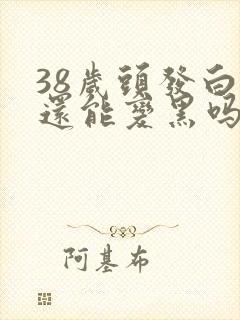 38歲頭發白
還能變黑吗
阿基布